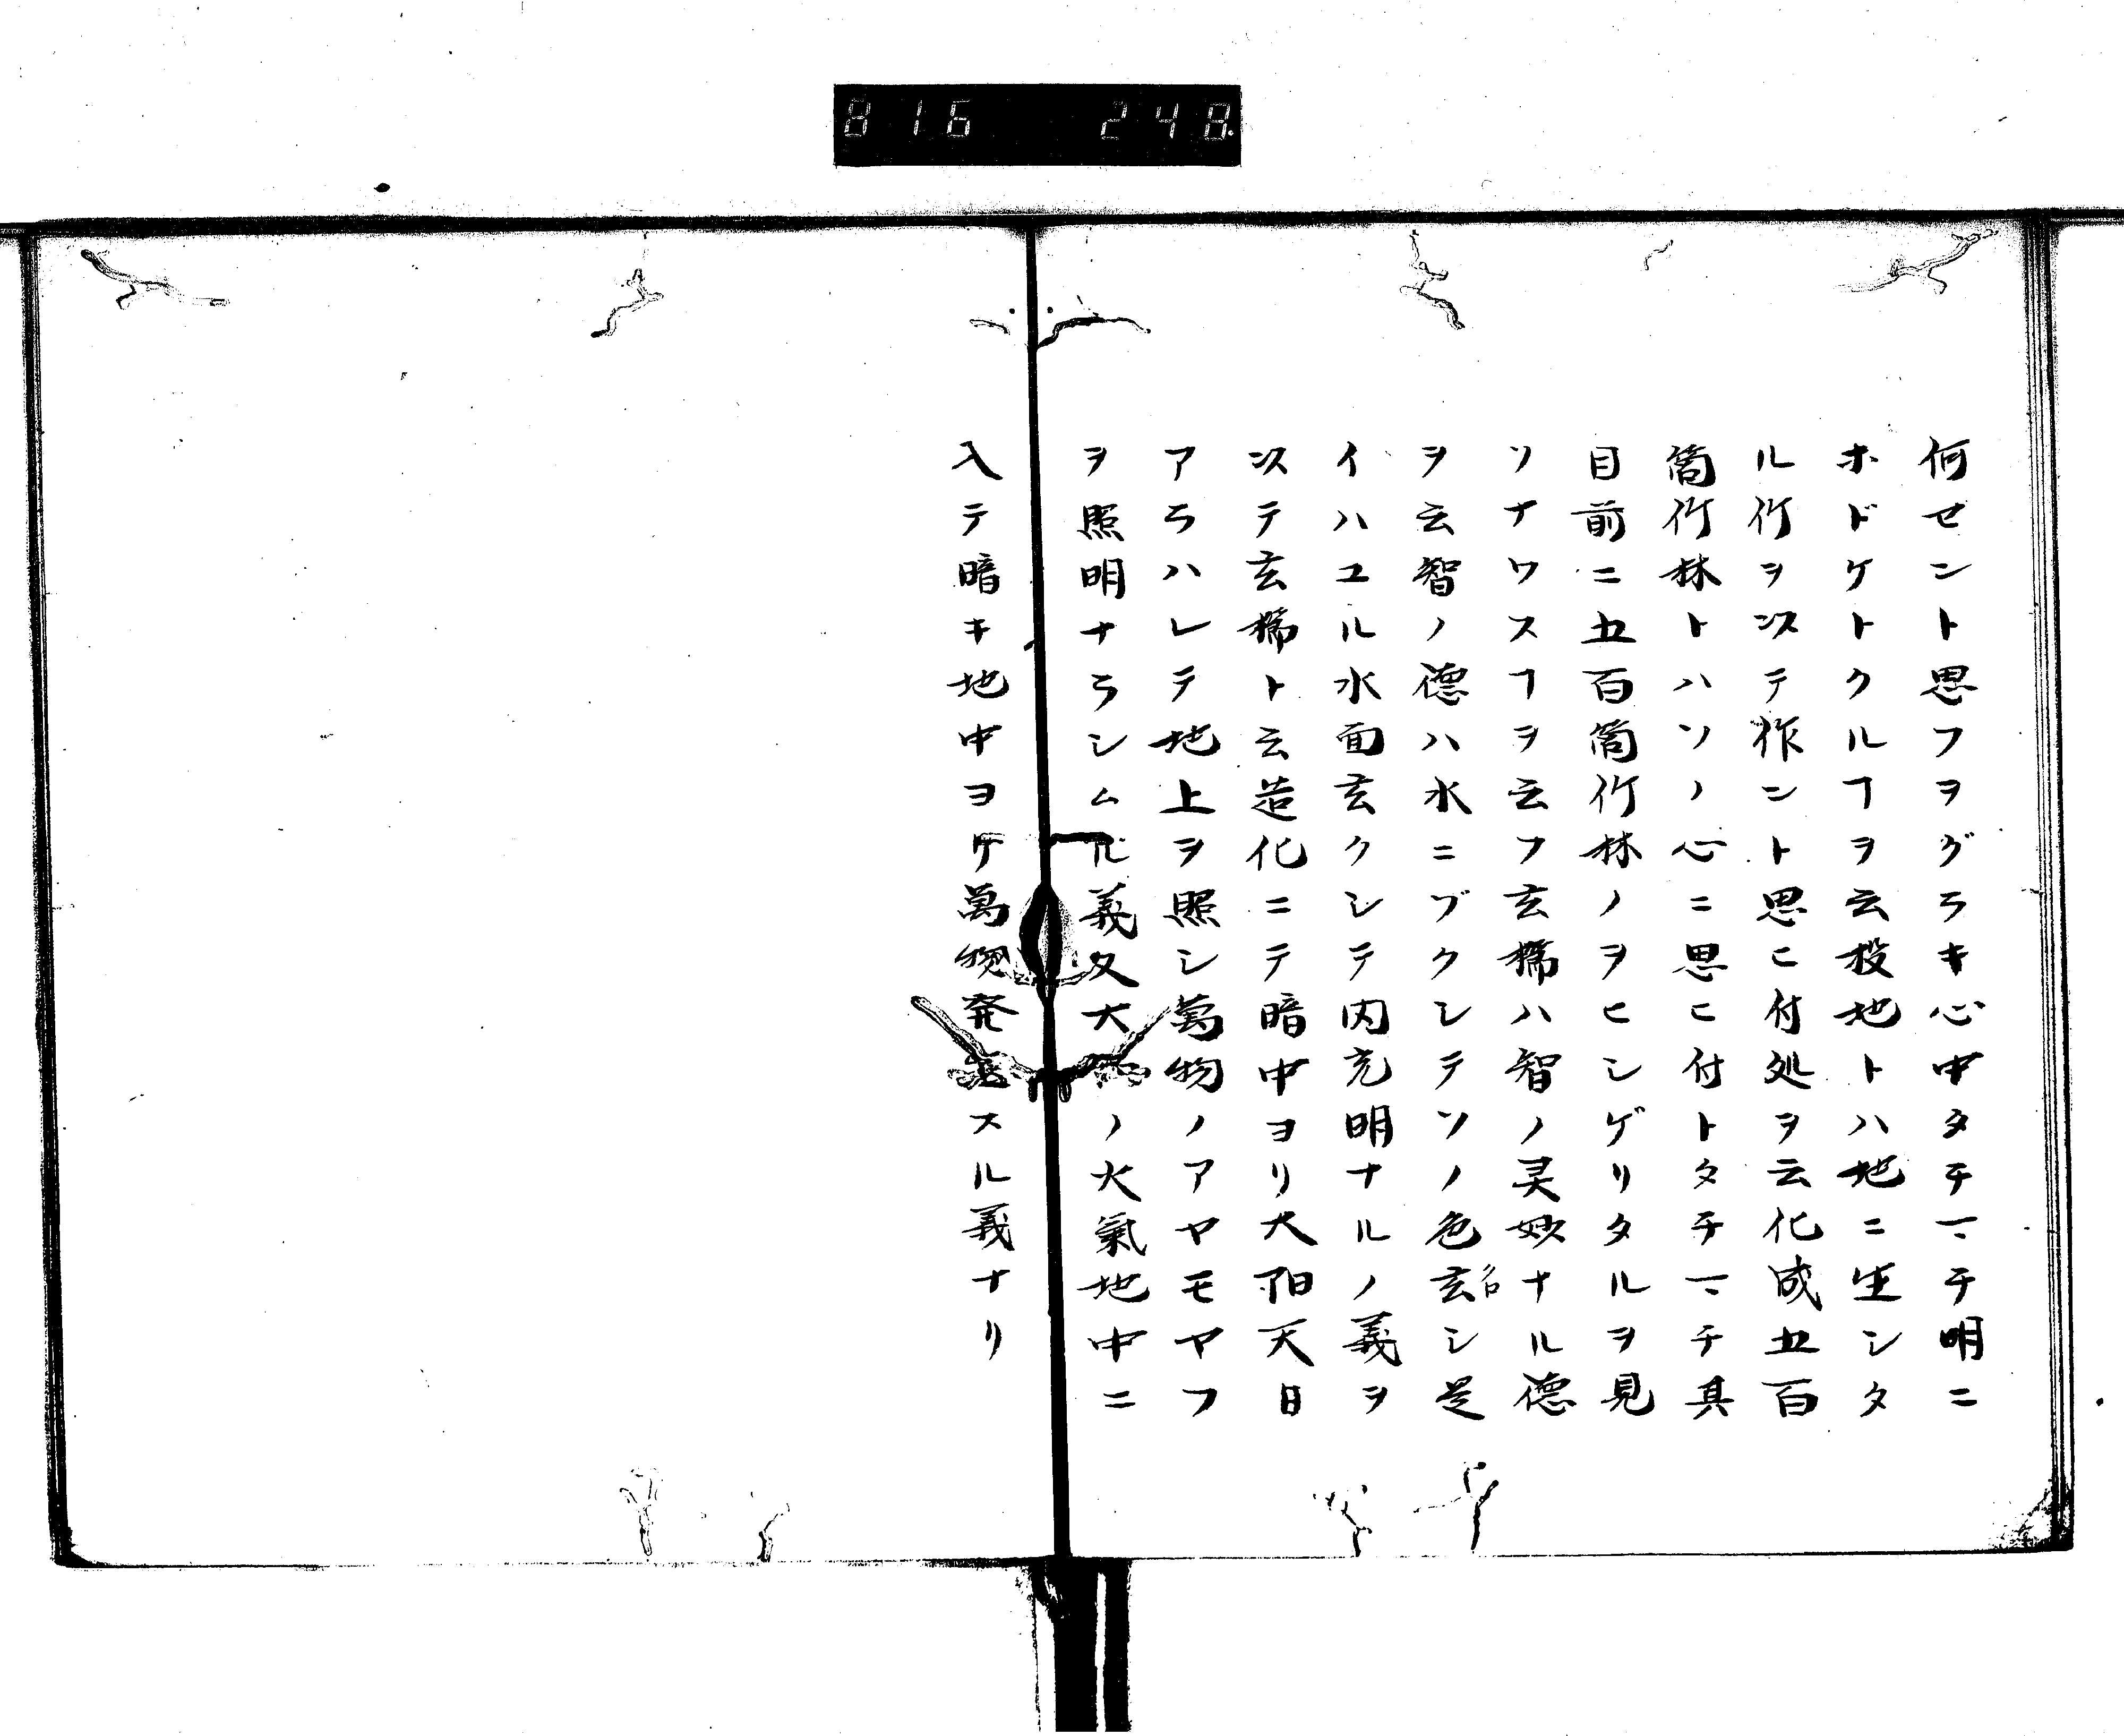 816 248.
何セント思フヲグラキ心中タチマチ明ニ
ホドケトクルヿヲ云投地トハ地ニ生シタ
ル竹ヲ以テ作ント思ヒ付処ヲ云化成五百
箇竹林トハソノ心ニ思ヒ付トタチマチ其
目前ニ五百箇竹林ノヲヒシゲリタルヲ見
ソナワスヿヲ云フ玄櫛ハ智ノ灵妙ナル徳
ヲ云智ノ徳ハ水ニゾクシテソノ色玄クロシ是
イハユル水面玄クシテ内光明ナルノ義ヲ
以テ玄櫛ト云造化ニテ暗中ヨリ大陽天日
アラハレテ地上ヲ照シ萬物ノアヤモヤフ
ヲ照明ナラシムル義又大ノ火氣地中ニ
入テ暗キ地中ヨリ萬物発スル義ナリ